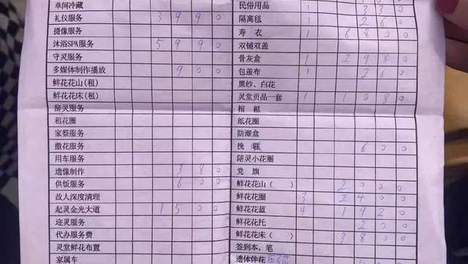 单间冷藏
礼仪服务 3990
摄像服务
沐浴SPA服务 5990
守灵服务
多媒体制作播放 900
鲜花花山(租)
鲜花花床(租)
宿灵服务
租花圈
家祭服务
撒花服务
用车服务
遗像制作 380
供饭服务 600
故人深度清理
起灵金光大道 1500
迎灵服务
代办服务费
灵堂鲜花布置
家属车
民俗用品
隔离毯 1 260
寿 衣 1 6800
双铺双盖
骨灰盒 1 2980
包盖布 1 260
黑纱、白花
灵堂贡品一套
棺 柩
纸花圈
防潮盒
挽 联 600
陪灵小花圈
党 旗
鲜花花山( ) 2000
鲜花花圈
鲜花花篮
鲜花花托
鲜花花床( ) 3800
签到本、笔
遗体伴花